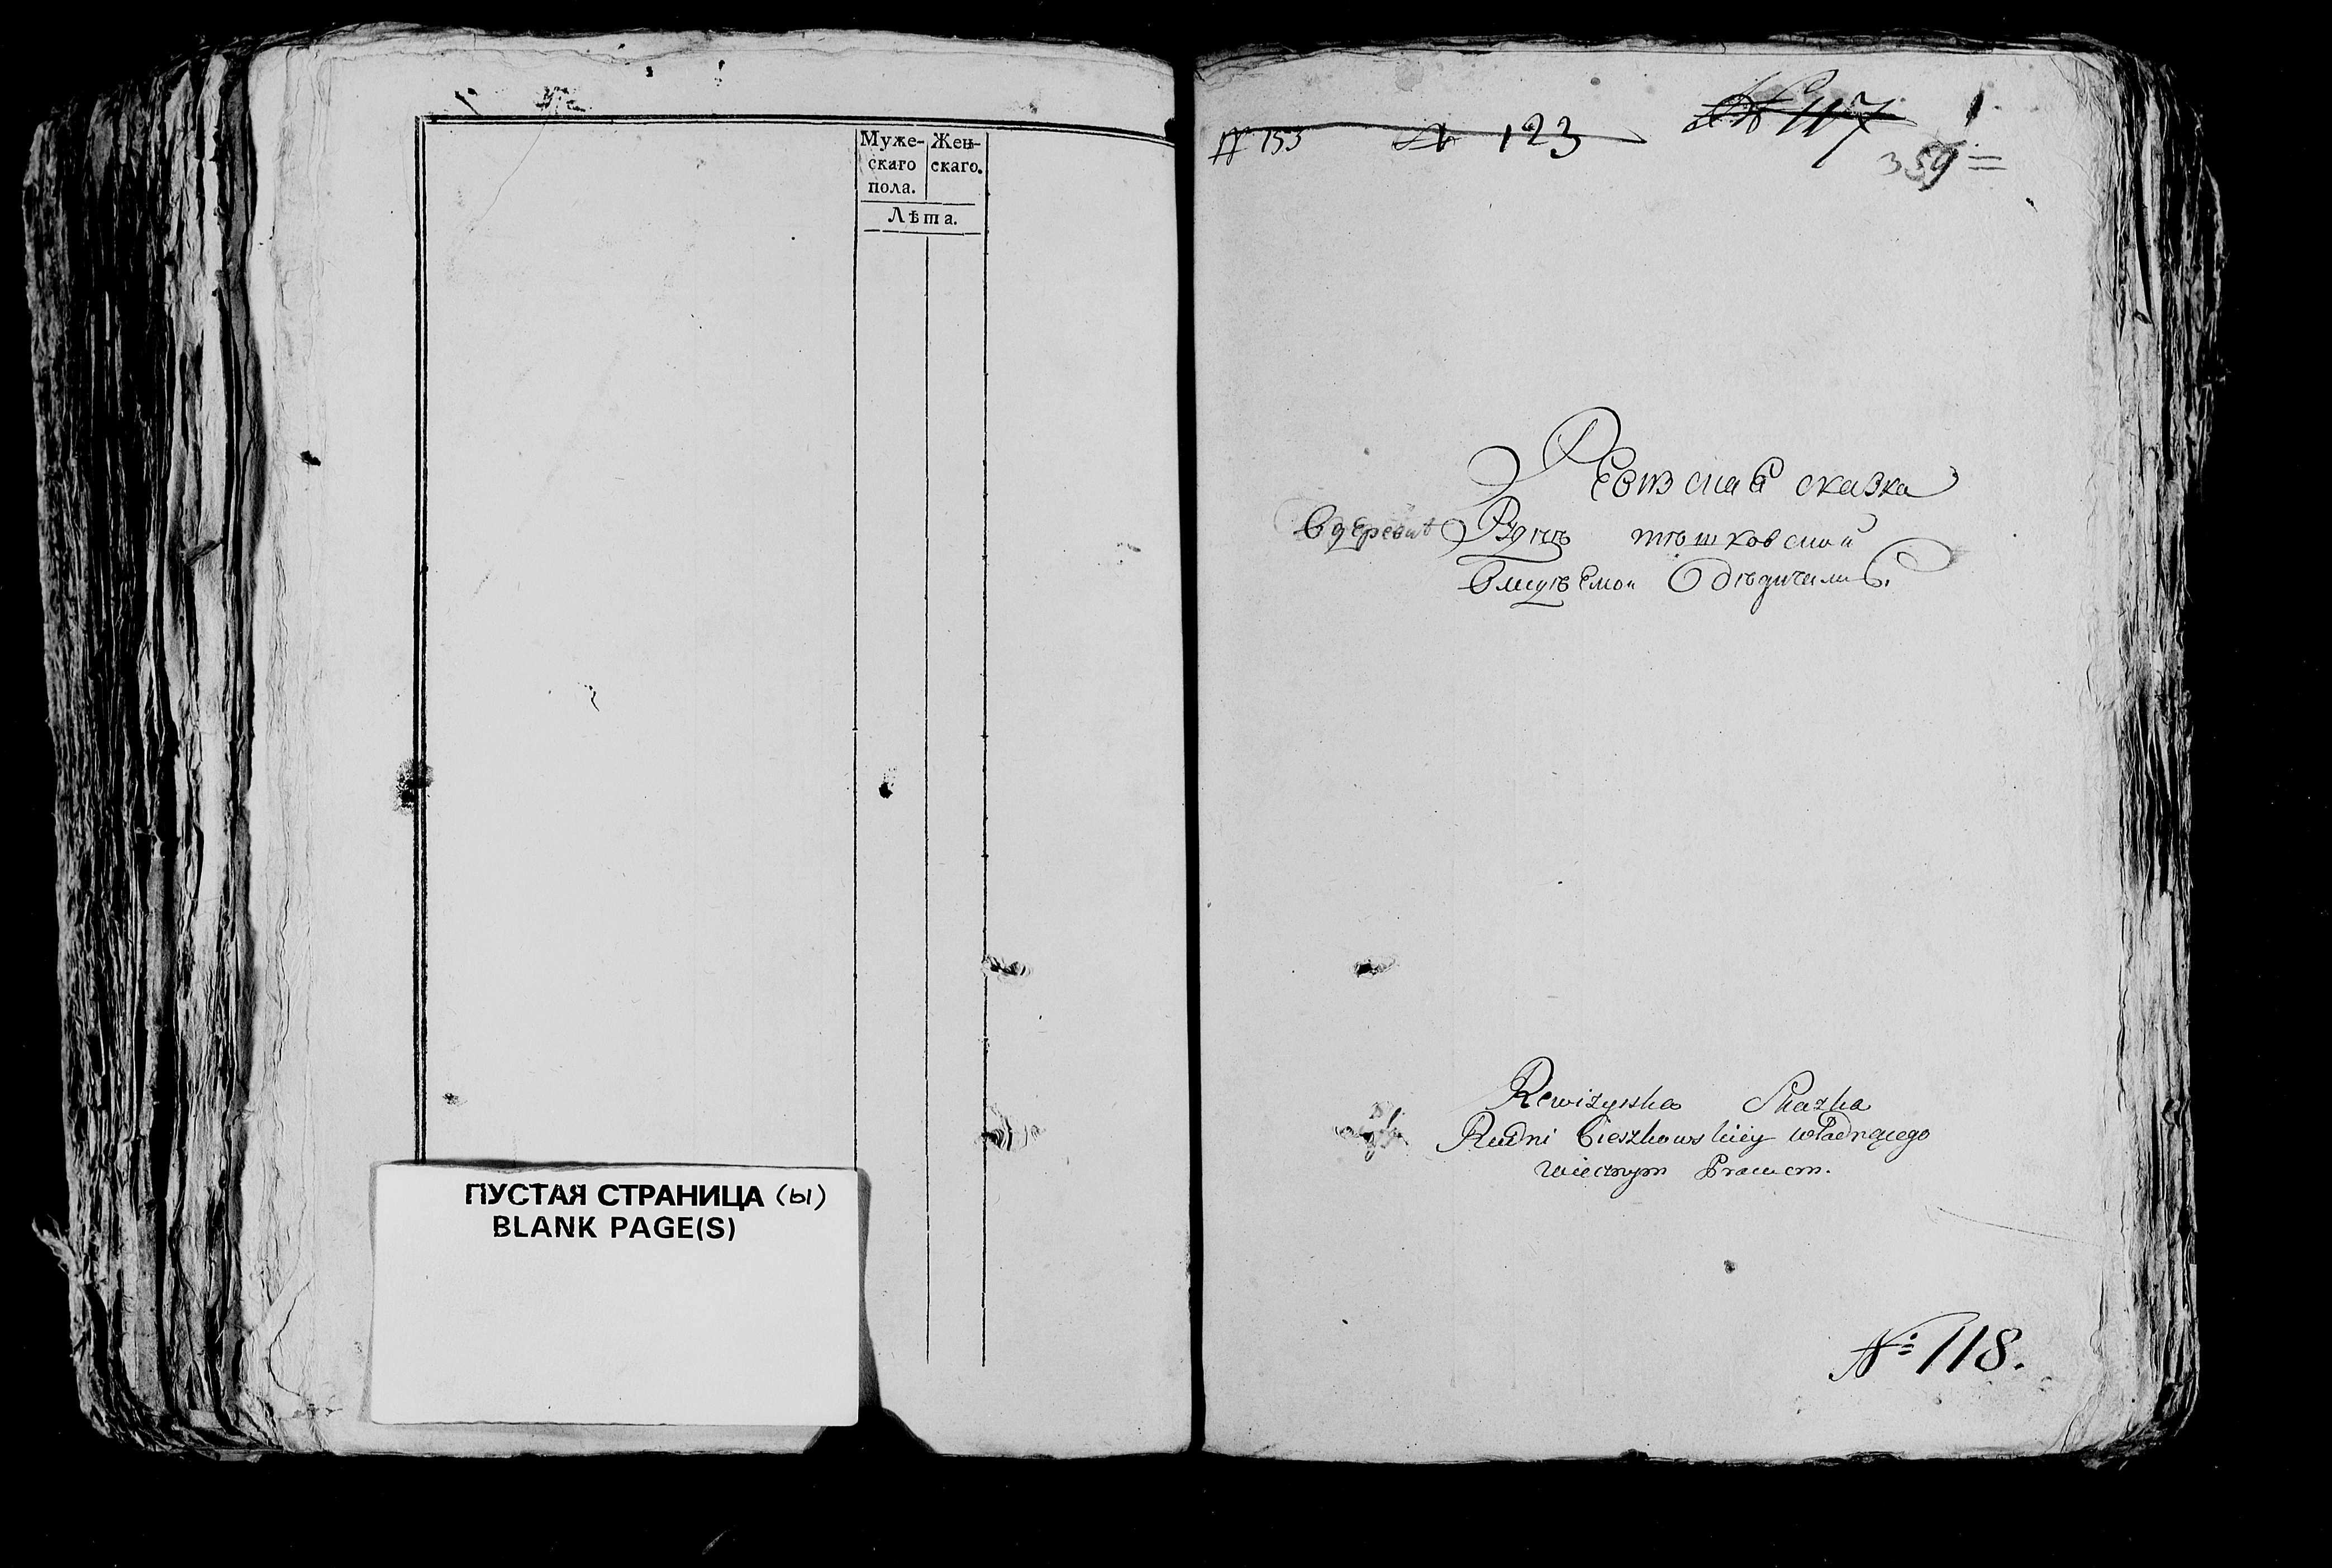 Муже-
скаго
пола.
Жен-
скаго.
Лѣта.
ПУСТАЯ СТРАНИЦА (ы)
BLANK PAGE(S)
№ 153
№ 123
№ 117
1
359
Ревизская сказка
В деревнѣ Руднѣ тѣшковской
Rewizyszka Skazka
Rudni Cieszkowskiey władnącego
wiecznym Prawem.
№ 118.